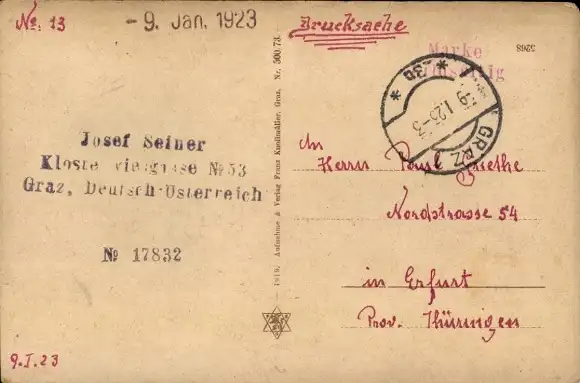 №. 13
- 9. Jan. 1923
Drucksache
Marke
3268
* 3a *
-9.I.23-3
GRAZ
Josef Seiner
Graz, Deutsch-Österreich
№ 17832
1919. Aufnahme & Verlag Franz Knollmüller, Graz. Nr. 500/73.
An
Herrn Paul
Nordstrasse 54
in Erfurt
Prov. Thüringen
9.I.23